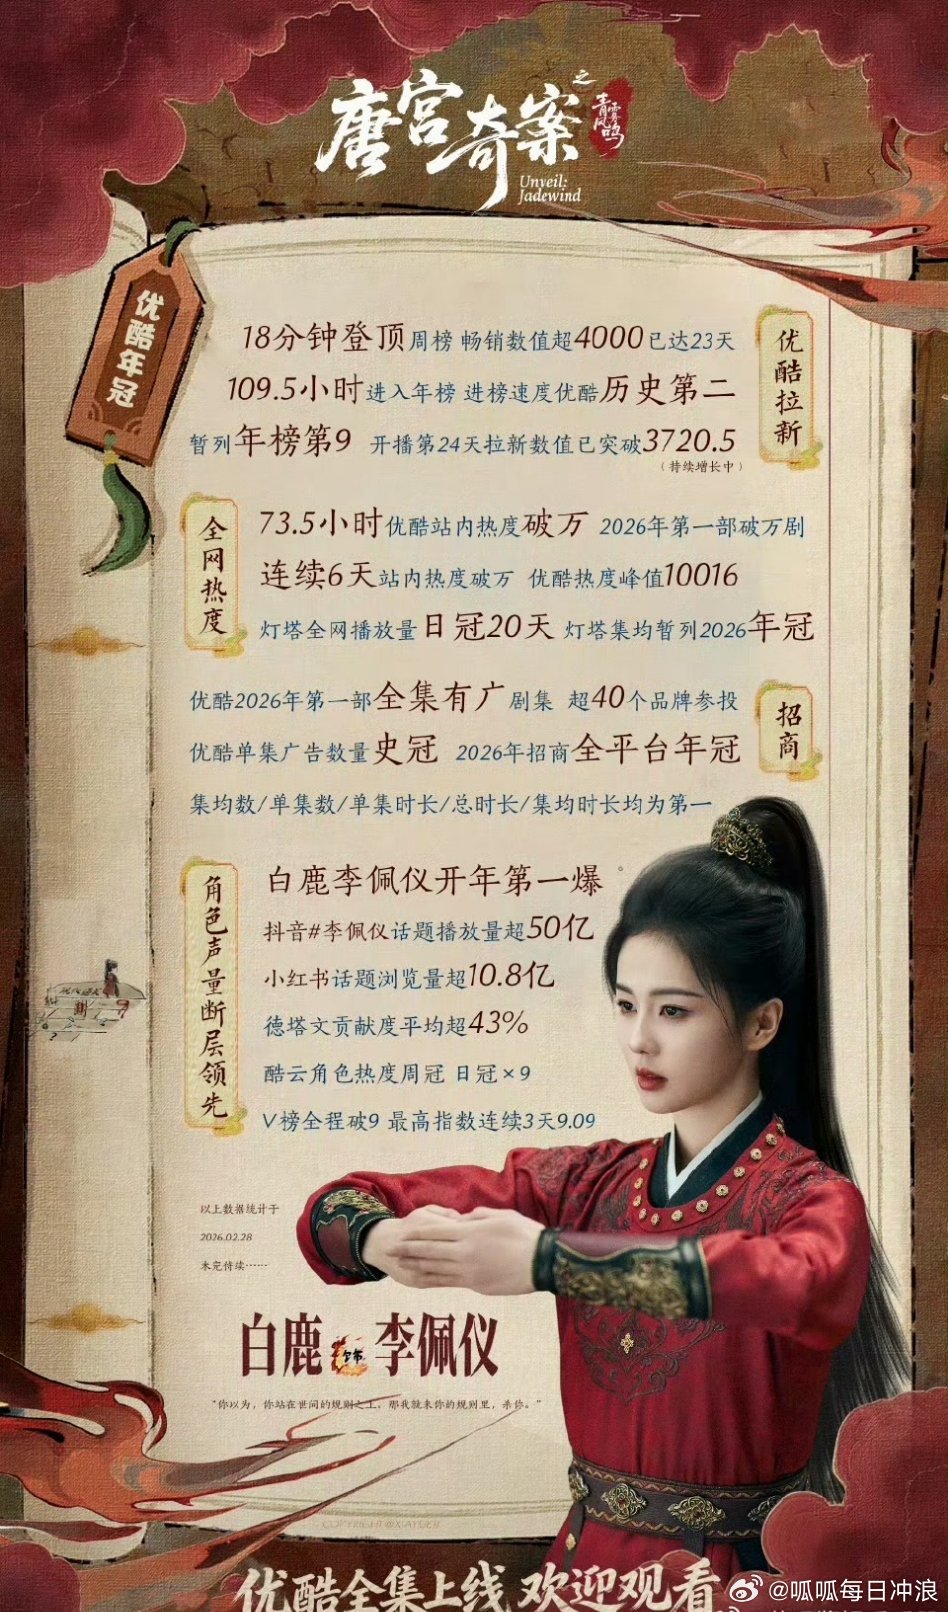 唐宫奇案
之
青雾风鸣
Unveil:
Jadewind
优酷年冠
优酷拉新
18分钟登顶周榜 畅销数值超4000已达23天
109.5小时进入年榜 进榜速度优酷历史第二
暂列年榜第9 开播第24天拉新数值已突破3720.5
（持续增长中）
全网热度
73.5小时优酷站内热度破万 2026年第一部破万剧
连续6天站内热度破万 优酷热度峰值10016
灯塔全网播放量日冠20天 灯塔集均暂列2026年冠
招商
优酷2026年第一部全集有广剧集 超40个品牌参投
优酷单集广告数量史冠 2026年招商全平台年冠
集均数/单集数/单集时长/总时长/集均时长均为第一
角色声量断层领先
白鹿李佩仪开年第一爆
抖音#李佩仪话题播放量超50亿
小红书话题浏览量超10.8亿
德塔文贡献度平均超43%
酷云角色热度周冠 日冠×9
V榜全程破9 最高指数连续3天9.09
以上数据统计于
2026.02.28
未完待续……
白鹿 饰 李佩仪
“你以为，你站在世间的规则之上，那我就来你的规则里，杀你。”
优酷全集上线 欢迎观看
@呱呱每日冲浪